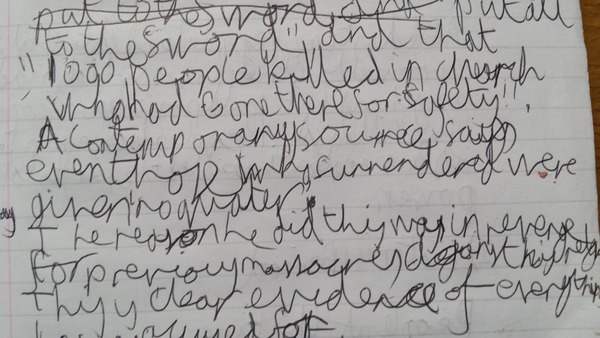 put to the sword, and put all
to the sword" and that
"1000 people killed in church
who had gone there for safety".
A contemporary source says
even those who surrendered were
given "no quater".
The reason he did this was in revenge
for previous massacres against his
this is clear evidence of everything
for.